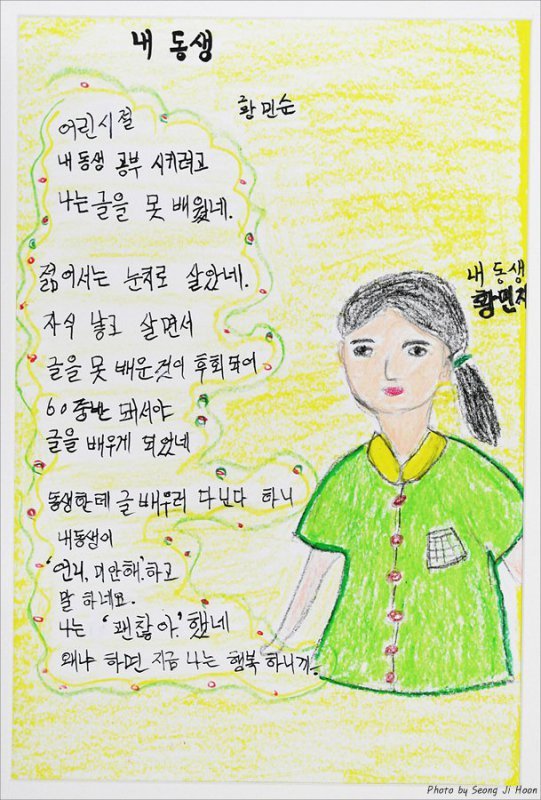 내 동생
황민순
어린시절
내 동생 공부 시키려고
나는 글을 못 배웠네.
젊어서는 눈치로 살았네.
자식 낳고 살면서
글을 못 배운것이 후회되어
60중반 돼서야
글을 배우게 되었네
동생한테 글 배우러 다닌다 하니
내동생이
'언니, 미안해.'하고
말 하네요.
나는 '괜찮아.' 했네
왜냐 하면 지금 나는 행복 하니까.
내 동생
황민자
Photo by Seong Ji Hoon